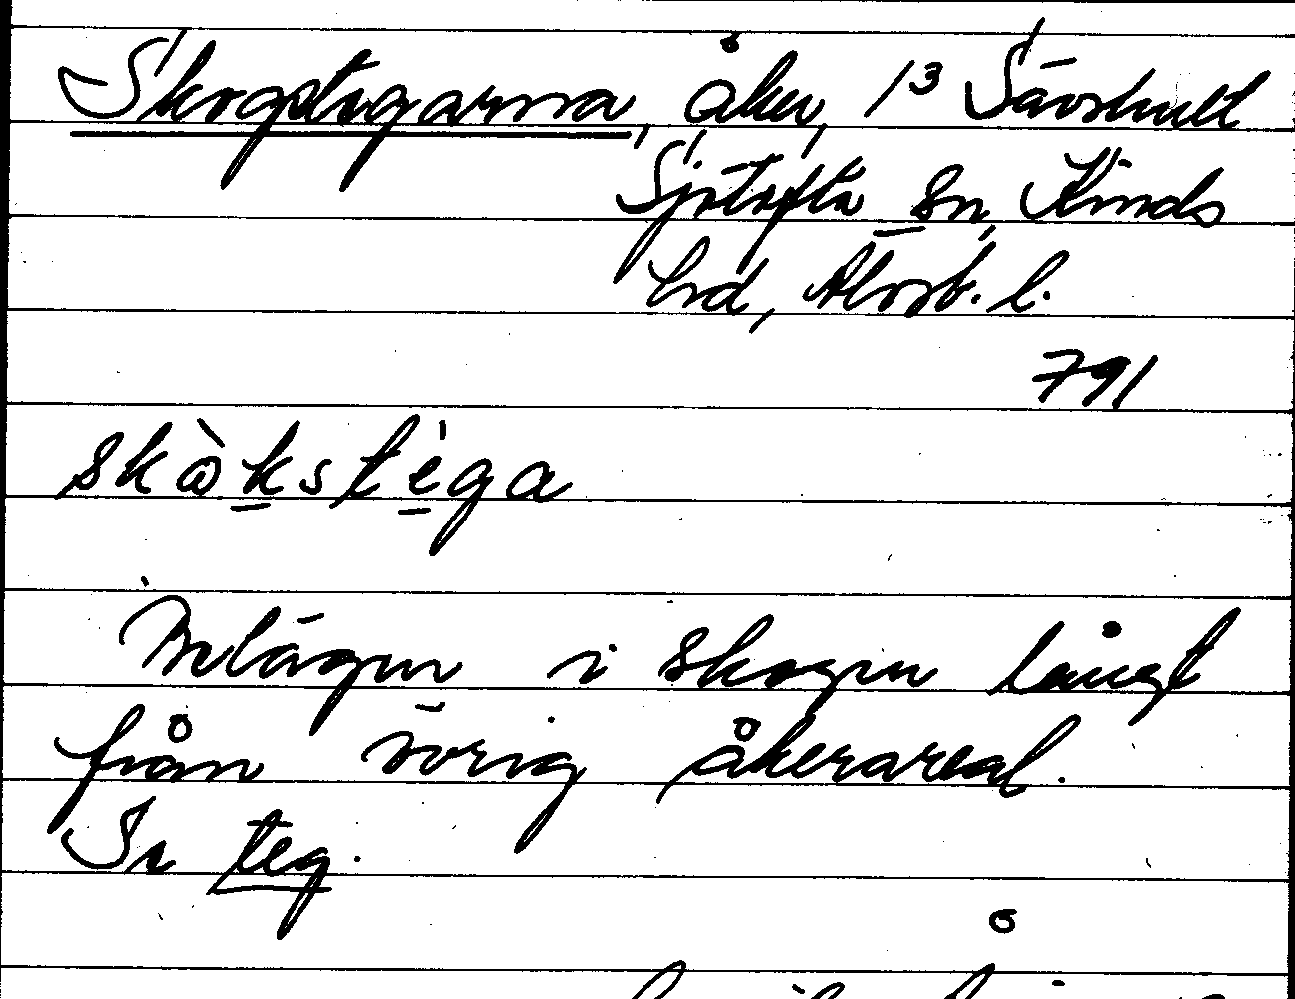 Skogstegarna, åker, 1³ Sävshult
Sjötofta sn, Kinds
hrd, Älvsb. l.
791
skὼkstèga
Belägen i skogen långt
från övrig åkerareal.
Se teg.